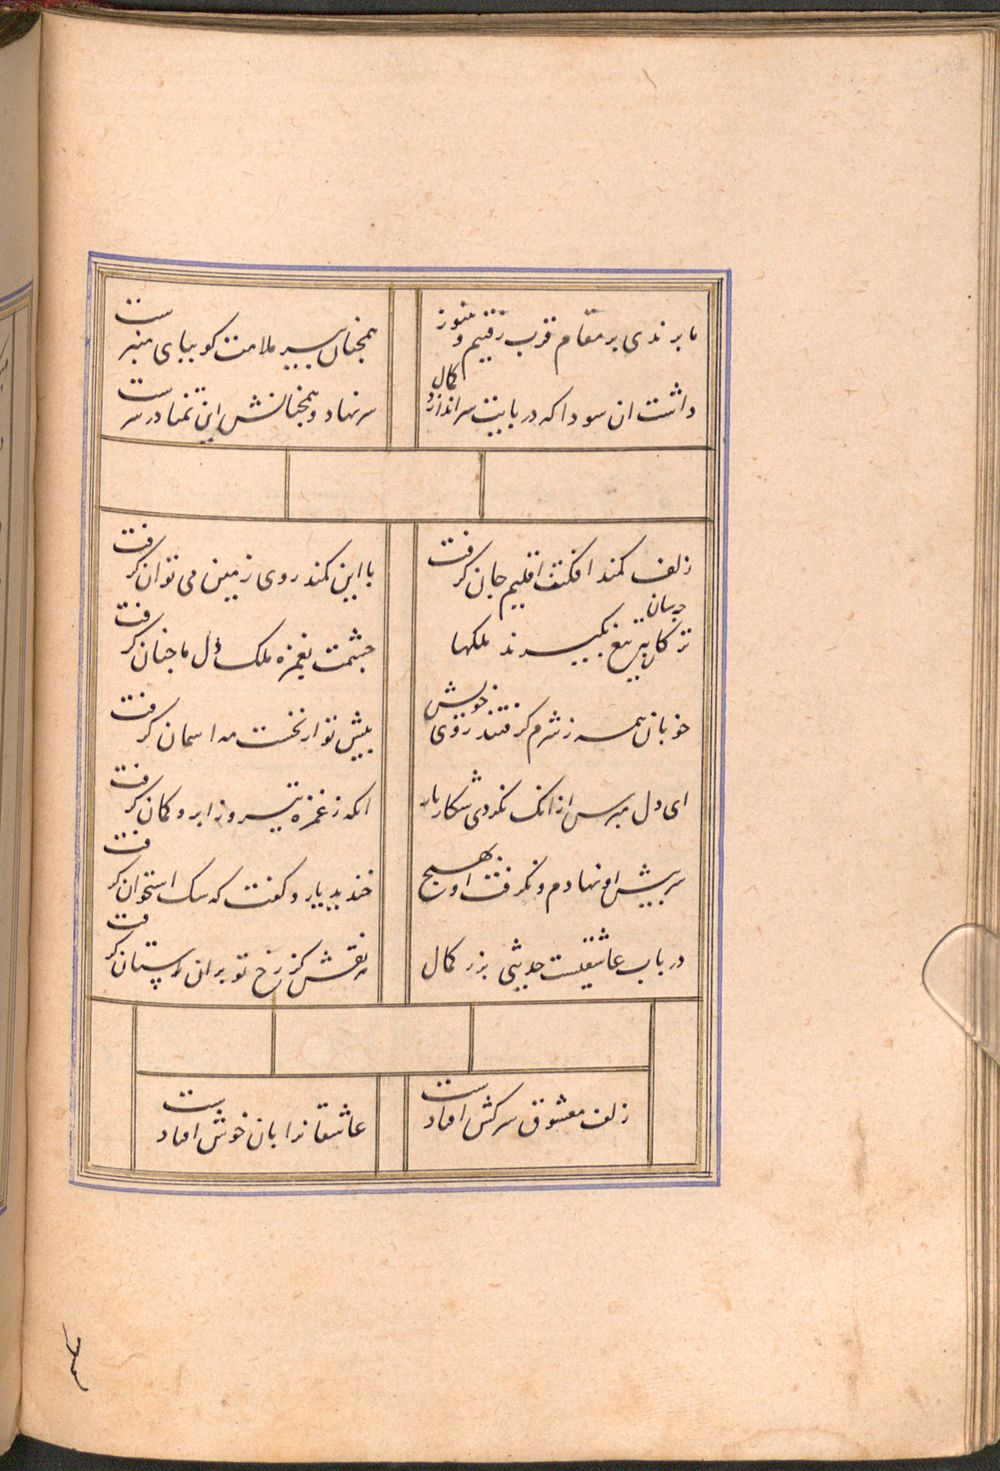 ما برندی بر مقام قرب رفتیم و هنوز
همچنان سیر ملامت کو بپای منبرست
داشت ان سودا که در پایت سر اندازد کمال
سر نهاد و همچنانش این تمنا در سرست
زلف کمند افکنت اقلیم جان گرفت
با این کمند روی زمین می توان گرفت
ترکان به تیغ بگیرند ملکها
چشمت بغمزه ملک دل ما چنان گرفت
خوبان همه ز شرم گرفتند روی خویش
پیش تو از نخست مه اسمان گرفت
ای دل مپرس از انک نکردی شکار یار
انکه ز غمزه تیر و ز ابرو کمان گرفت
سر پیش او نهادم و نگرفت او بهیچ
خندید یار و گفت که سک استخوان گرفت
در باب عاشقیست حدیثی بزر کمال
نقش کز رخ تو بران گرفت
زلف معشوق سرکش افتادست
عاشقانرا بان خوش افتادست